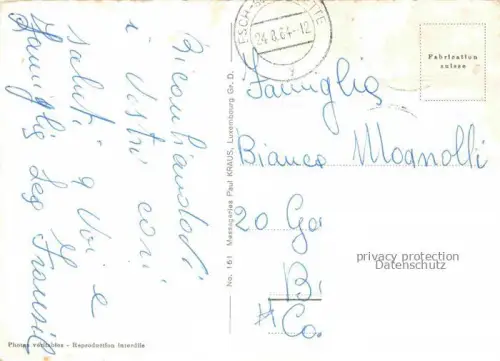 Ricambiando
i Vostri cari
saluti a Voi e
Famiglia
ESCH-S
24.8.64-12
Fabrication
suisse
Famiglia
Bianco Mognolli
20 Ga
Bi
Co
privacy protection
Datenschutz
No. 161 Messageries Paul KRAUS, Luxembourg Gr.-D.
Photos véritables - Reproduction interdite